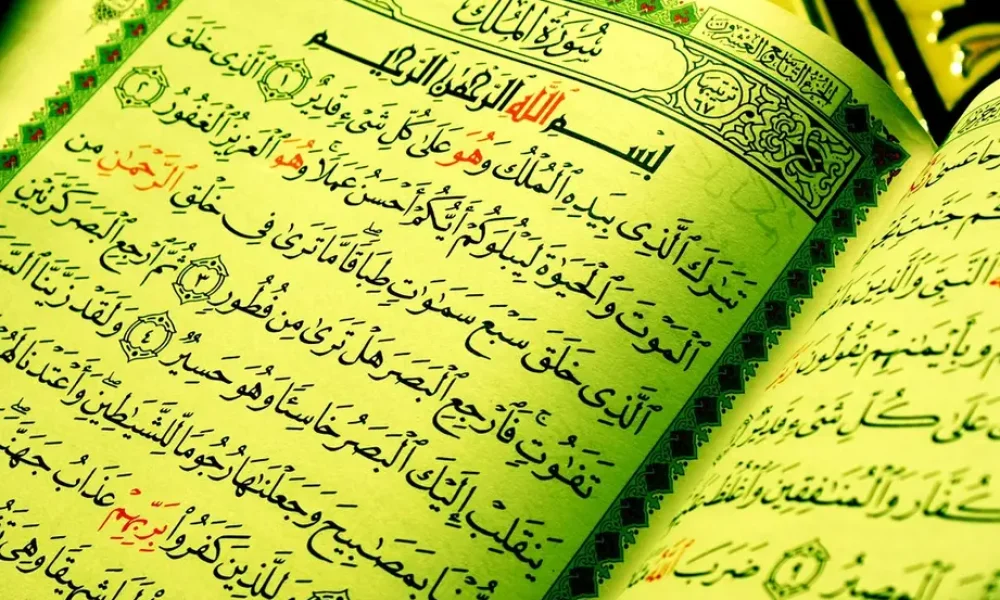 الجزء التاسع والعشرون
سُورَةُ المُلْكِ
ترتيبها ٦٧
بِسْمِ ٱللَّهِ ٱلرَّحْمَٰنِ ٱلرَّحِيمِ
تَبَٰرَكَ ٱلَّذِى بِيَدِهِ ٱلْمُلْكُ وَهُوَ عَلَىٰ كُلِّ شَىْءٍ قَدِيرٌ ١ ٱلَّذِى خَلَقَ
ٱلْمَوْتَ وَٱلْحَيَوٰةَ لِيَبْلُوَكُمْ أَيُّكُمْ أَحْسَنُ عَمَلًا ۚ وَهُوَ ٱلْعَزِيزُ ٱلْغَفُورُ ٢
ٱلَّذِى خَلَقَ سَبْعَ سَمَٰوَٰتٍ طِبَاقًا ۖ مَّا تَرَىٰ فِى خَلْقِ ٱلرَّحْمَٰنِ مِن
تَفَٰوُتٍ ۖ فَٱرْجِعِ ٱلْبَصَرَ هَلْ تَرَىٰ مِن فُطُورٍ ٣ ثُمَّ ٱرْجِعِ ٱلْبَصَرَ كَرَّتَيْنِ
يَنقَلِبْ إِلَيْكَ ٱلْبَصَرُ خَاسِئًا وَهُوَ حَسِيرٌ ٤ وَلَقَدْ زَيَّنَّا
بِمَصَٰبِيحَ وَجَعَلْنَٰهَا رُجُومًا لِّلشَّيَٰطِينِ ۖ وَأَعْتَدْنَا لَهُمْ
لِلَّذِينَ كَفَرُوا۟ بِرَبِّهِمْ عَذَابُ جَهَنَّمَ ۖ
شَهِيقًا وَهِىَ
ٱلنَّبِىَّ وَٱلَّذِينَ
وَبِأَيْمَٰنِهِمْ يَقُولُونَ
عَلَىٰ كُلِّ شَىْءٍ قَدِيرٌ
وَٱلْمُنَٰفِقِينَ وَٱغْلُظْ
ٱلْمَصِيرُ ٩ ضَرَبَ ٱللَّهُ